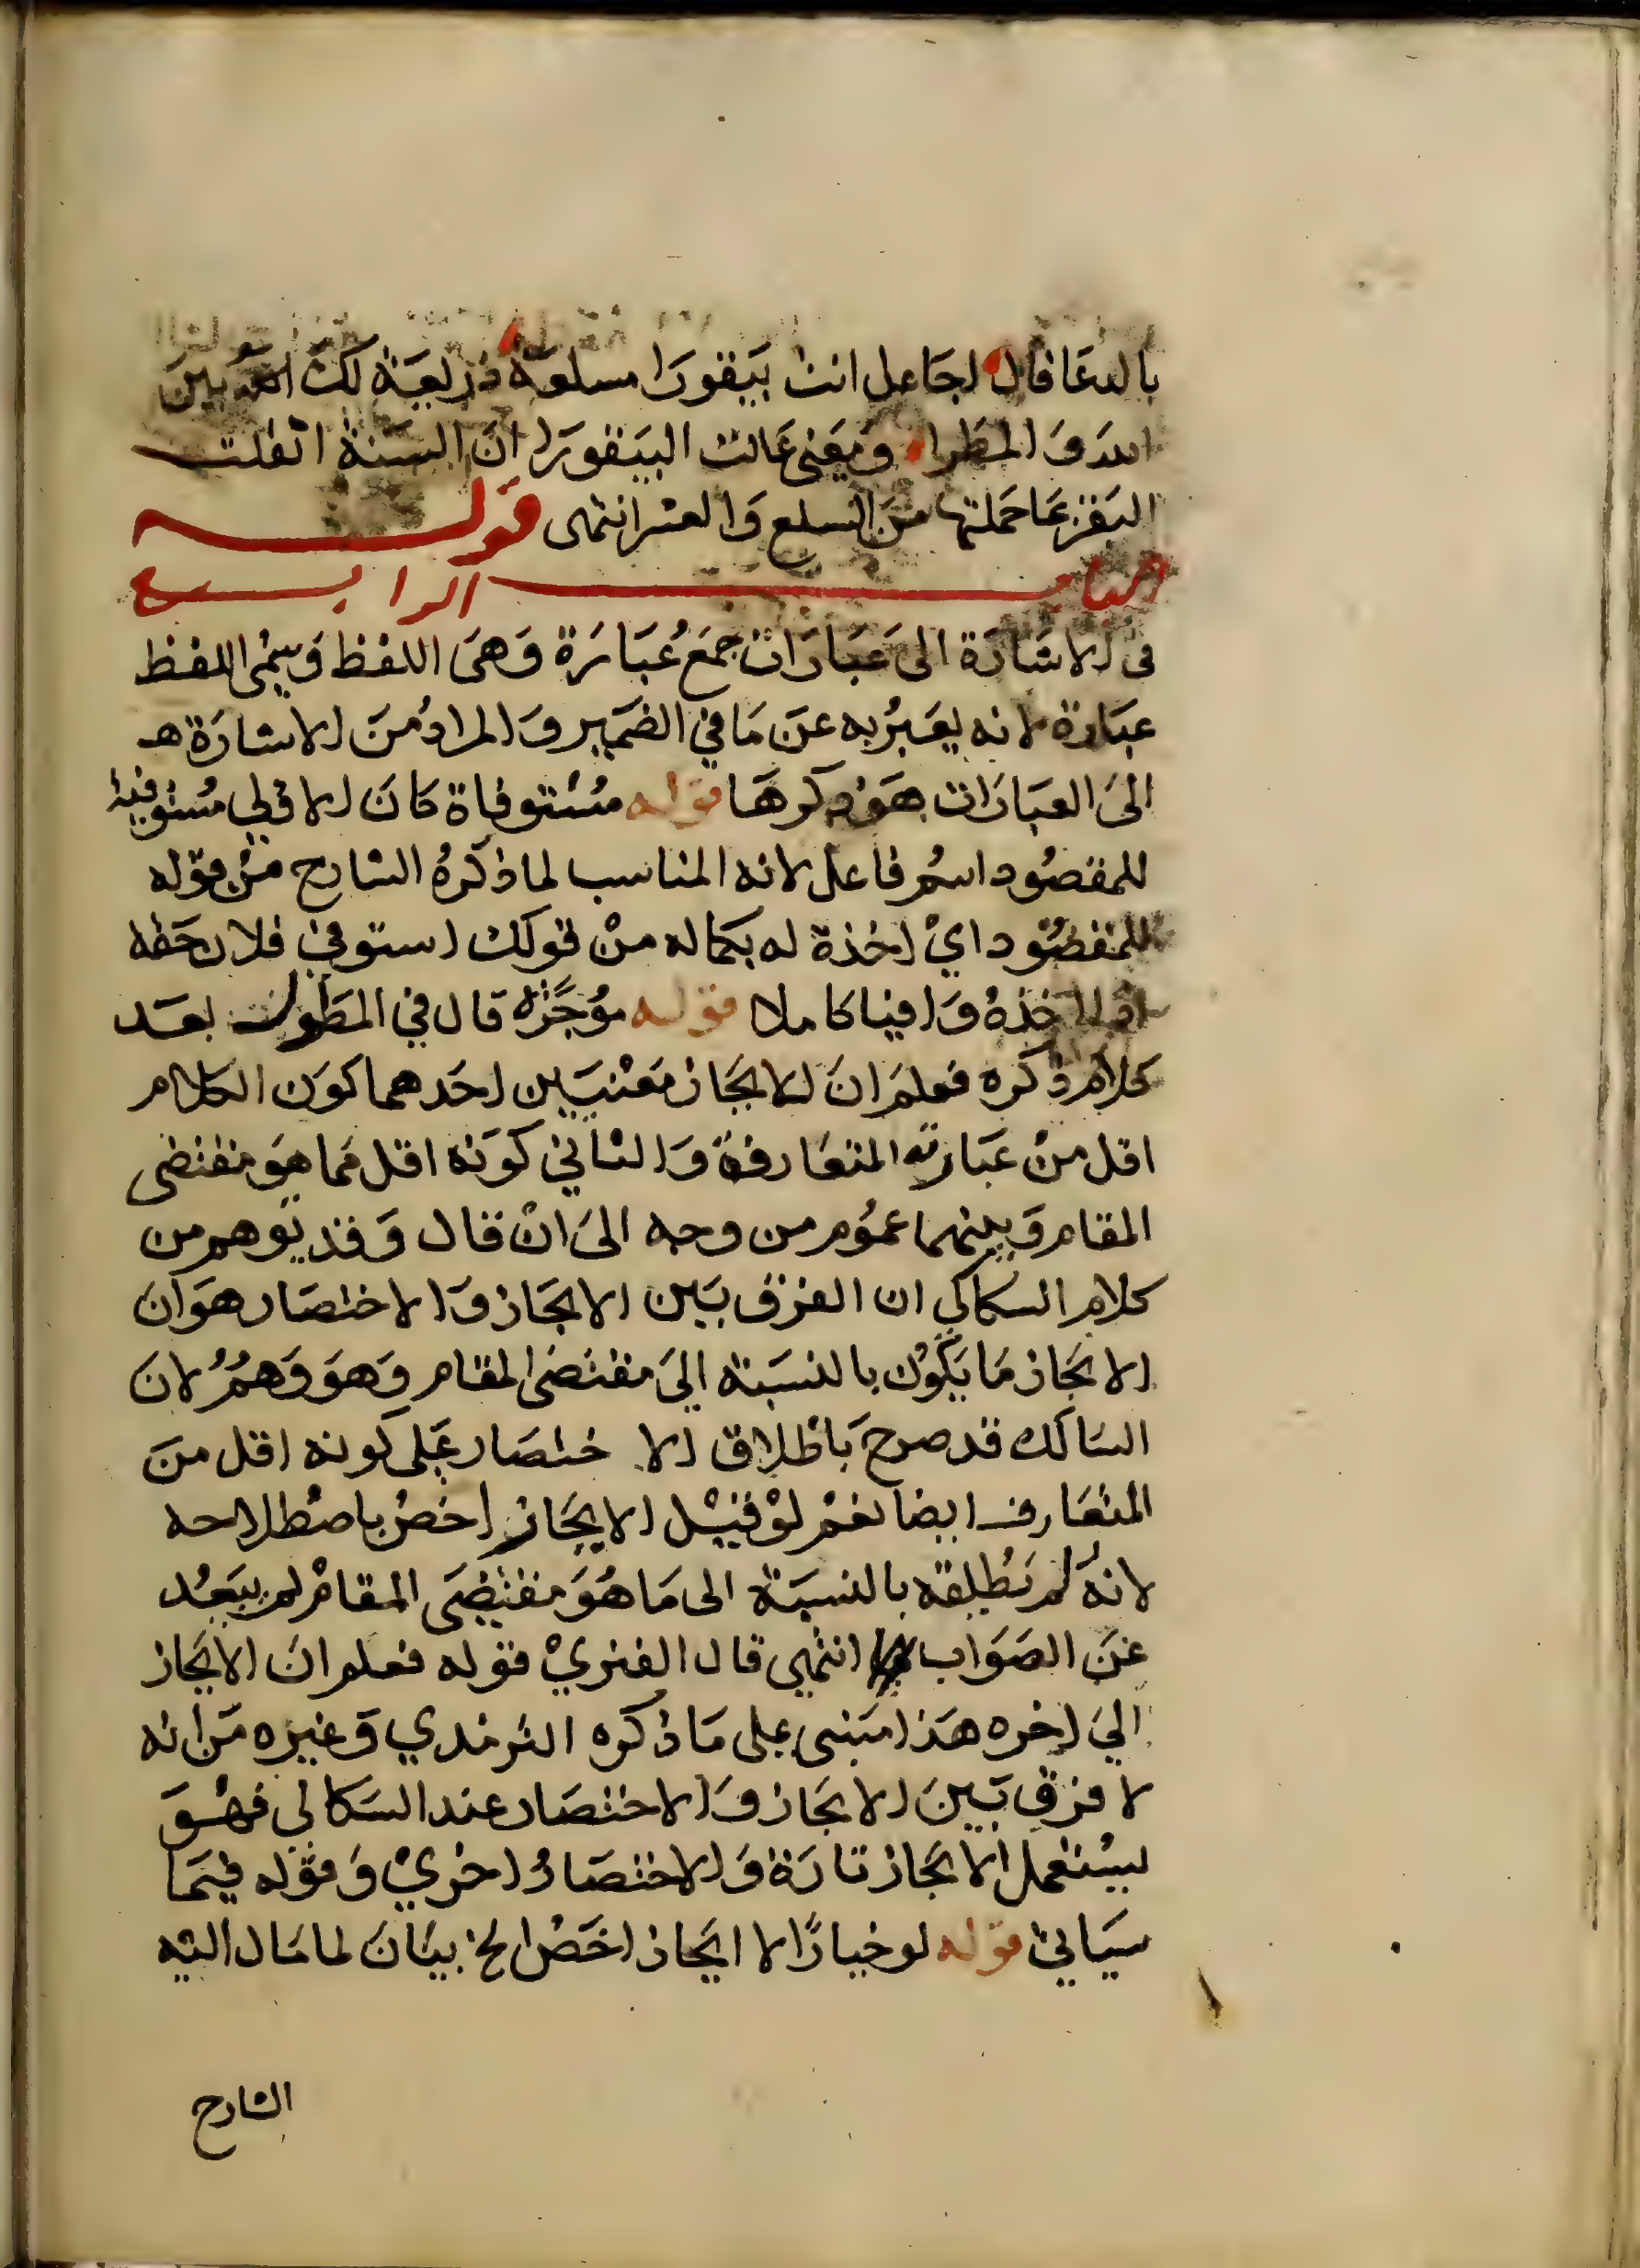 بالدعا فقال لجاعل انت بيقورا مسلعة ذريعة لك بين
الله والمطرا ومعنى عالت البيقورا ان السنة اثقلت
البقر بما حملتها من السلع والعشر انتهى قوله
الباب الرابع
في الاشارة الى عبارات جمع عبارة وهي اللفظ وسمى اللفظ
عبارة لانه يعبر به عن ما في الضمير والمراد من الاشارة هـ
الى العبارات هو ذكرها قوله مستوفاة كان الاولى مستوفية
للمقصود اسم فاعل لانه المناسب لما ذكره الشارح من قوله
للمقصود اي اخذة له بكماله من قولك استوفى فلان حقه
اخذه وافيا كاملا قوله موجزة قال في المطول بعد
كلام ذكره فعلم ان للايجاز معنيين احدهما كون الكلام
اقل من عبارته المتعارفة والثاني كونه اقل مما هو مقتضى
المقام وبينهما عموم من وجه الى ان قال وقد يوهم من
كلام السكاكي ان الفرق بين الايجاز والاختصار هو ان
الايجاز ما يكون بالنسبة الى مقتضى المقام وهو وهم لان
السالك قد صرح باطلاق الاختصار على كونه اقل من
المتعارف ايضا نعم لو قيل الايجاز اخص باصطلاحه
لانه لم يطلقه بالنسبة الى ما هو مقتضى المقام لم يبعد
عن الصواب انتهى قال الفنري قوله فعلم ان الايجاز
الى اخره هذا مبنى على ما ذكره الترمذي وغيره من انه
لا فرق بين الايجاز والاختصار عند السكاكي فهو
يستعمل الايجاز تارة والاختصار اخرى وقوله فيما
سياتي قوله لو خيارا الا ايجاز اخص الخ بيان لما مال اليه
الشارح